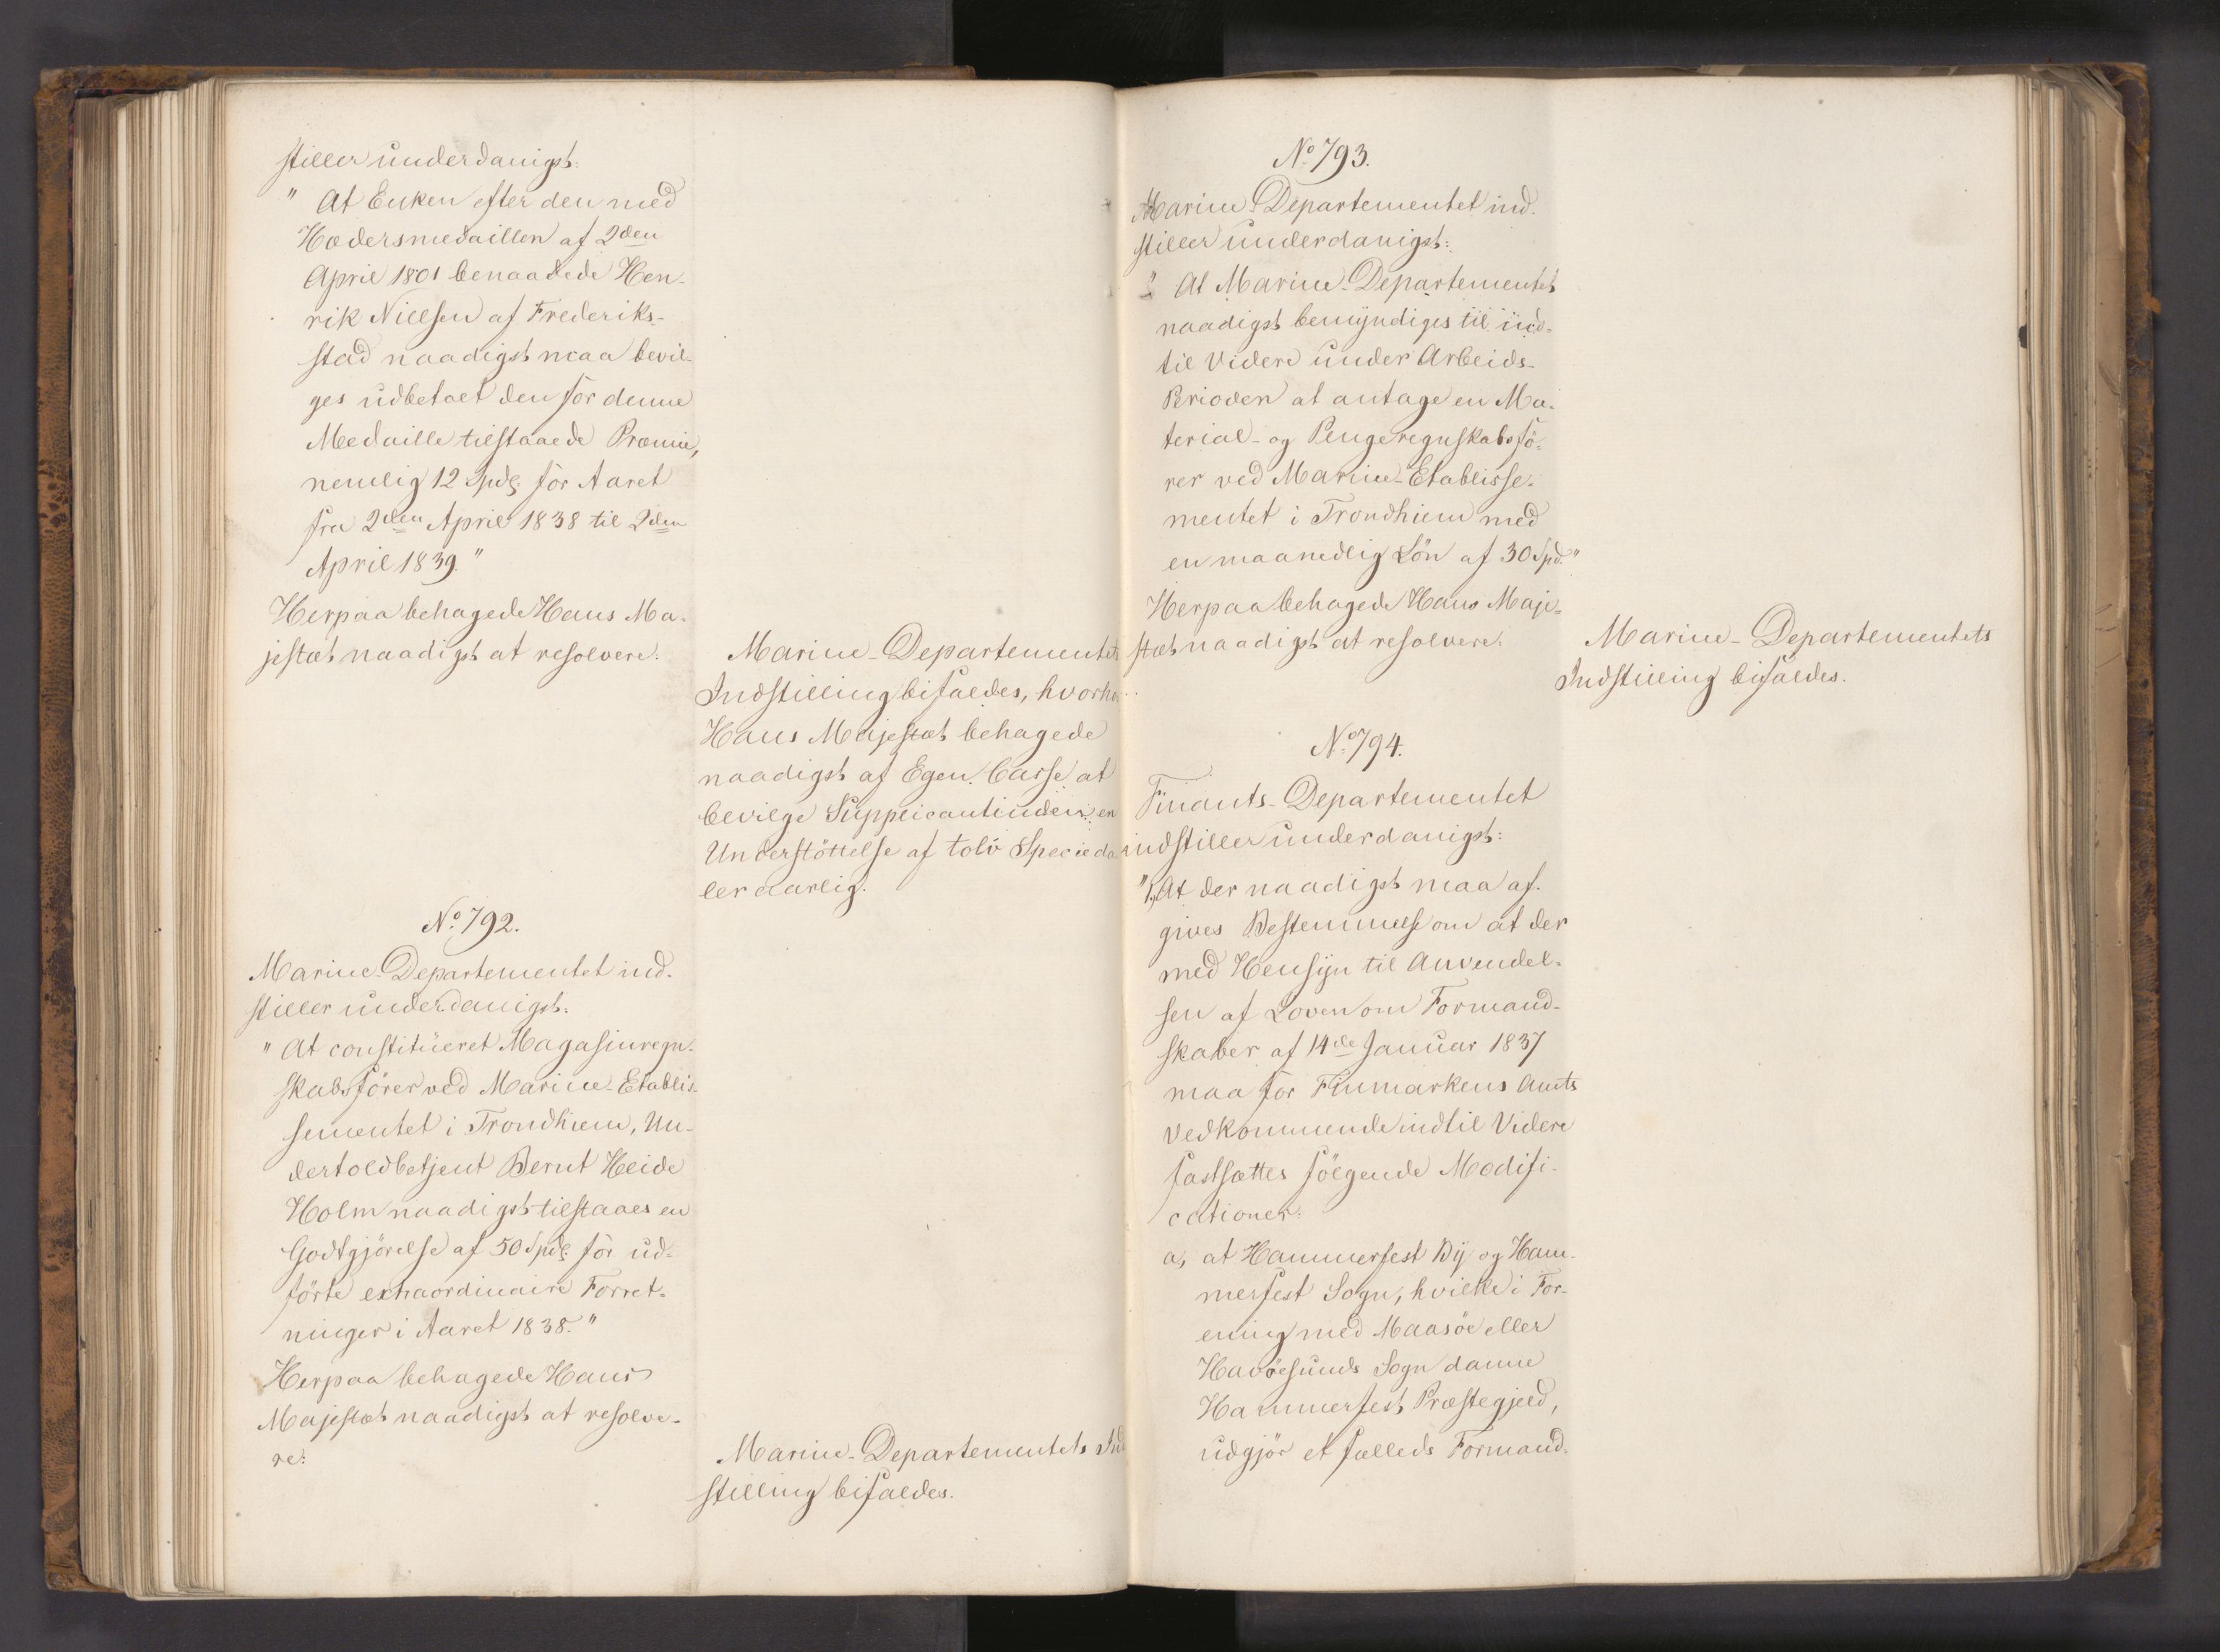 stiller underdanigst:
" At Enken efter den med
Hædersmedaillen af 2den
April 1801 benaadede Hen-
rik Nielsen af Frederiks-
stad naadigst maa bevil-
ges udbetalt den for denne
Medaille tilstaaede Præmie,
nemlig 12 Spd. for Aaret
fra 2den April 1838 til 2den
April 1839."
Herpaa behagede Hans Ma-
jestæt naadigst at resolvere:
Marine-Departementets
Indstilling bifaldes, hvorhos
Hans Majestæt behagede
naadigst af Egen Casse at
bevilge Supplicantinden en
Understöttelse af tolv Specieda-
ler aarlig.
No 792.
Marine-Departementet ind-
stiller underdanigst:
" At constitueret Magasinregn-
skabsförer ved Marine-Etablis-
sementet i Trondhiem, Un-
dertoldbetjent Bernt Heide
Holm naadigst tilstaaes en
Godtgjörelse af 50 Spd. for ud-
förte extraordinaire Forret-
ninger i Aaret 1838."
Herpaa behagede Hans
Majestæt naadigst at resolve-
re:
Marine-Departementets Ind-
stilling bifaldes.
No 793.
Marine-Departementet ind-
stiller underdanigst:
" At Marine-Departementet
naadigst bemyndiges til ind-
til Videre under Arbeids-
Perioden at antage en Ma-
terial- og Pengeregnskabsfö-
rer ved Marine-Etablisse-
mentet i Trondhiem med
en maanedlig Lön af 30 Spd."
Herpaa behagede Hans Maje-
stæt naadigst at resolvere:
Marine-Departementets
Indstilling bifaldes.
No 794.
Finants-Departementet
indstiller underdanigst:
"1, At der naadigst maa af-
gives Bestemmelse om at der
med Hensyn til Anvendel-
sen af Loven om Formand-
skaber af 14de Januar 1837
maa for Finmarkens Amts
Vedkommende indtil Videre
fastsættes fölgende Modifi-
cationer:
a, at Hammerfest By og Ham-
merfest Sogn, hvilke i For-
ening med Maasöe eller
Havöesunds Sogn danne
Hammerfest Præstegjeld,
udgjör et fælleds Formand-